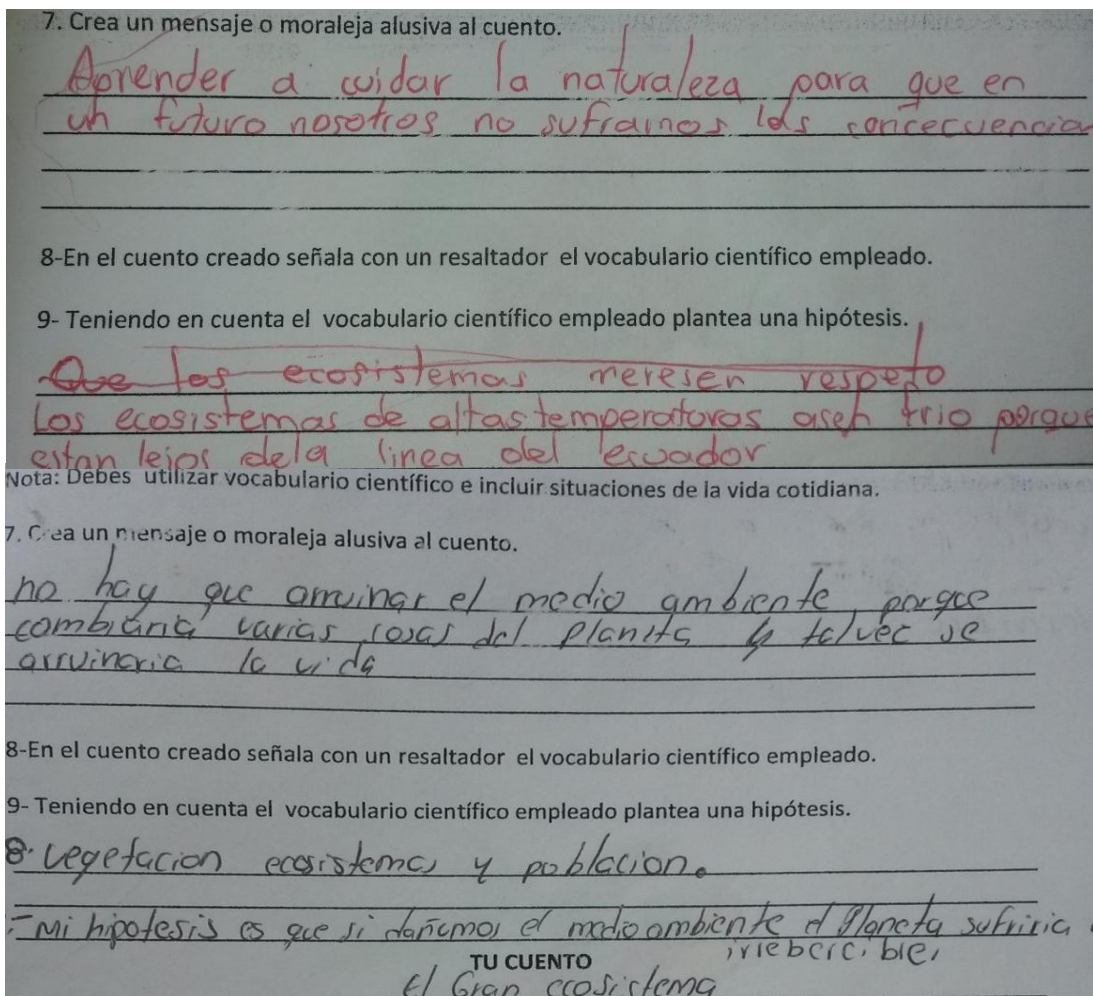 7. Crea un mensaje o moraleja alusiva al cuento.
Aprender a cuidar la naturaleza para que en
un futuro nosotros no suframos las concecuencias
8-En el cuento creado señala con un resaltador el vocabulario científico empleado.
9- Teniendo en cuenta el vocabulario científico empleado plantea una hipótesis.
Que los ecosistemas meresen respeto
Los ecosistemas de altas temperaturas asen frio porque
estan lejos dela linea del ecuador
Nota: Debes utilizar vocabulario científico e incluir situaciones de la vida cotidiana.
7. Crea un mensaje o moraleja alusiva al cuento.
no hay que arruinar el medio ambiente, porque
combiaria varias cosas del planeta y talvec se
arruinaria la vida
8-En el cuento creado señala con un resaltador el vocabulario científico empleado.
9- Teniendo en cuenta el vocabulario científico empleado plantea una hipótesis.
8. vegetacion ecosistemas y poblacion.
- Mi hipotesis es que si dañamos el medio ambiente el planeta sufriria
TU CUENTO
El Gran ecosistema